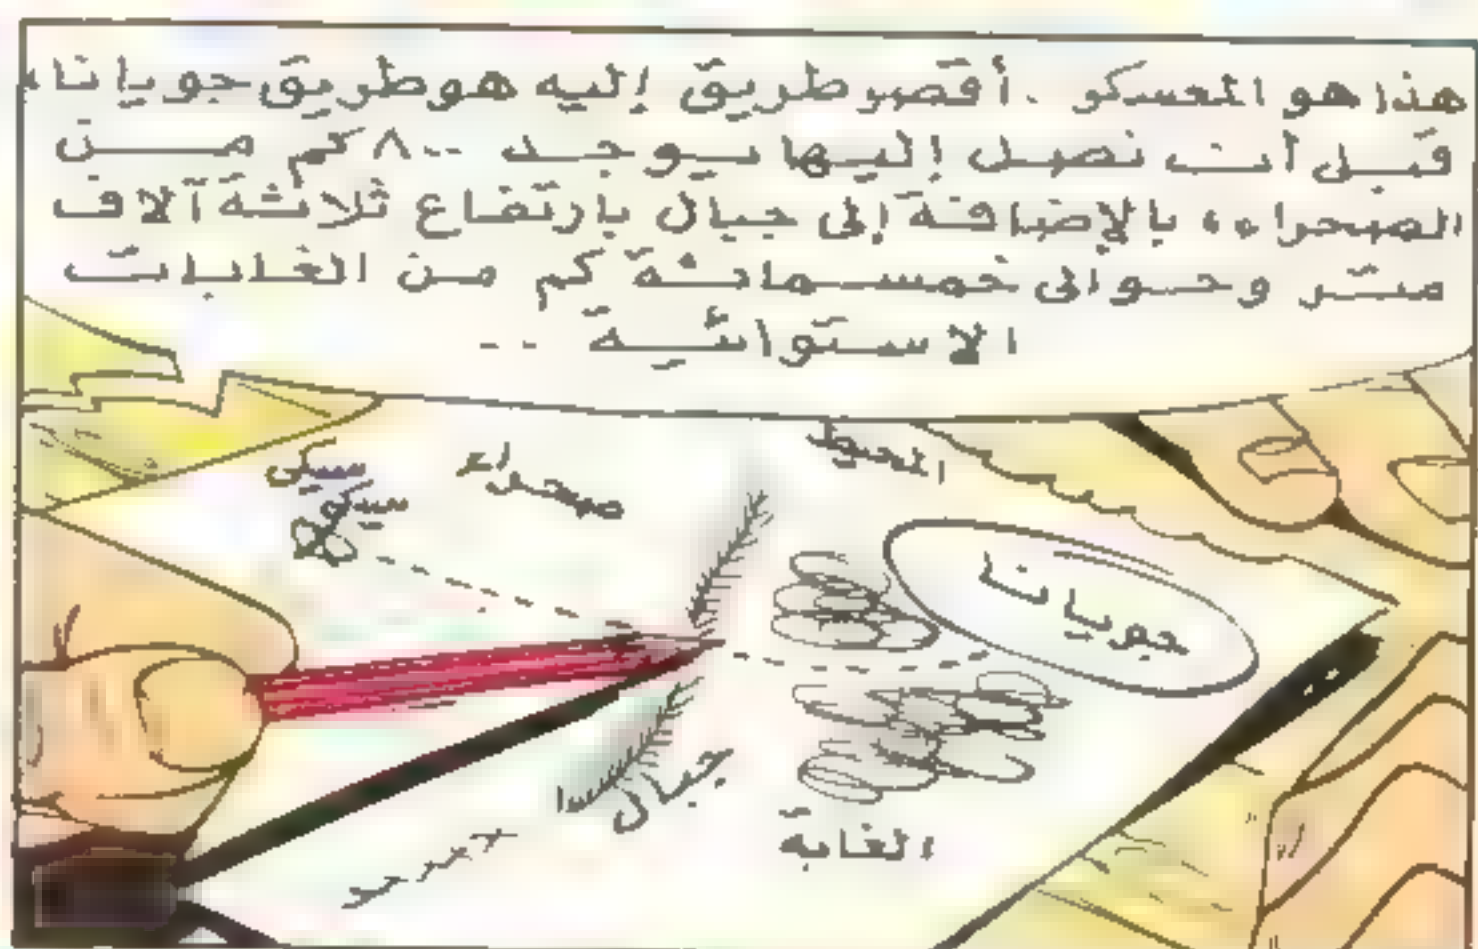 هذا هو المعسكر . أقصر طريق إليه هو طريق جويانا،
قبل أن نصل إليها يوجد ٨٠٠ كم من
الصحراء، بالإضافة إلى جبال بارتفاع ثلاثة آلاف
متر وحوالى خمسمائة كم من الغابات
الاستوائية ..
المحيط
صحراء
سيكى
سيكو
جويانا
جبال
الغابة